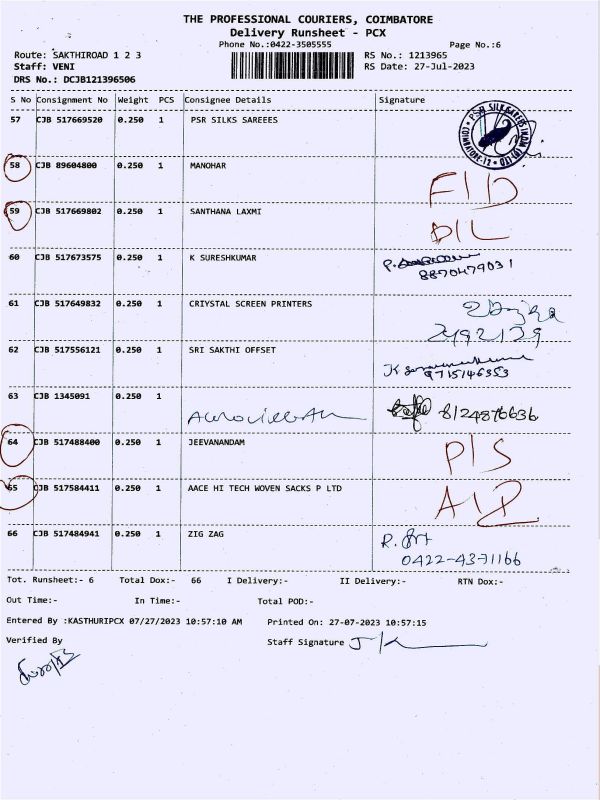 THE PROFESSIONAL COURIERS, COIMBATORE
Delivery Runsheet - PCX
Phone No.:0422-3505555 Page No.:6
Route: SAKTHIROAD 1 2 3 RS No.: 1213965
Staff: VENI RS Date: 27-Jul-2023
DRS No.: DCJB121396506
S No Consignment No Weight PCS Consignee Details Signature
57 CJB 517669520 0.250 1 PSR SILKS SAREEES
58 CJB 89604800 0.250 1 MANOHAR F/D
59 CJB 517669802 0.250 1 SANTHANA LAXMI D/L
60 CJB 517673575 0.250 1 K SURESHKUMAR P.
8870479031
61 CJB 517649832 0.250 1 CRIYSTAL SCREEN PRINTERS
2492129
62 CJB 517556121 0.250 1 SRI SAKTHI OFFSET K
9715146353
63 CJB 1345091 0.250 1 8124876636
64 CJB 517488400 0.250 1 JEEVANANDAM P/S
65 CJB 517584411 0.250 1 AACE HI TECH WOVEN SACKS P LTD
66 CJB 517484941 0.250 1 ZIG ZAG R.
0422-4371166
Tot. Runsheet:- 6 Total Dox:- 66 I Delivery:- II Delivery:- RTN Dox:-
Out Time:- In Time:- Total POD:-
Entered By :KASTHURIPCX 07/27/2023 10:57:10 AM Printed On: 27-07-2023 10:57:15
Verified By Staff Signature